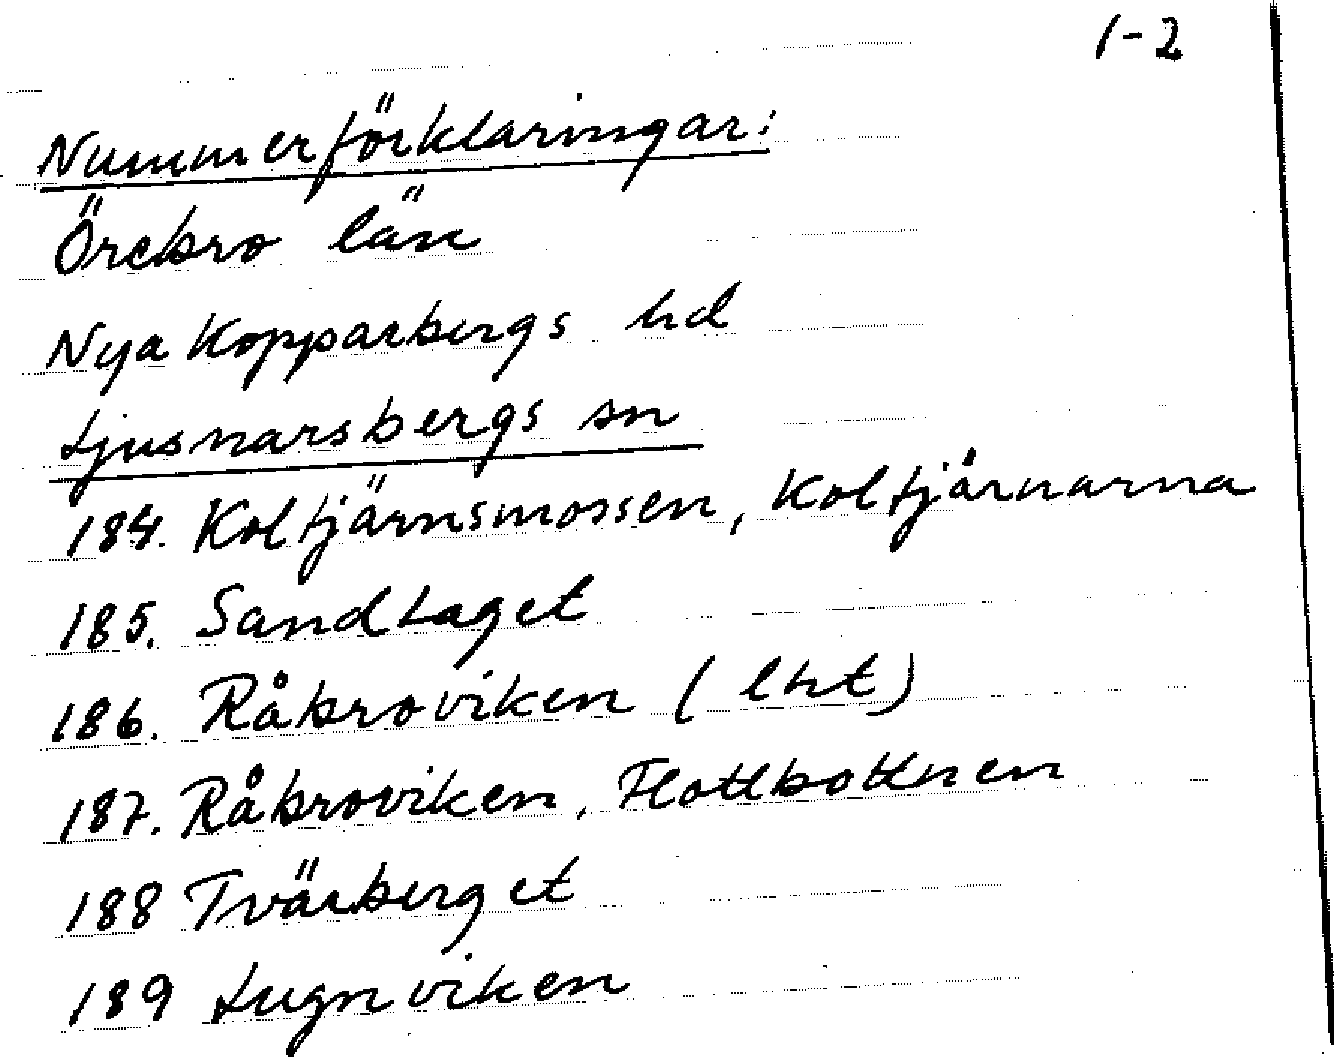 1-2
Nummerförklaringar:
Örebro län
Nya Kopparbergs hd
Ljusnarsbergs sn
184. Koltjärnsmossen, Koltjärnarna
185. Sandtaget
186. Råbroviken (lht)
187. Råbroviken, Flottbottnen
188 Tvärberget
189 Lugnviken